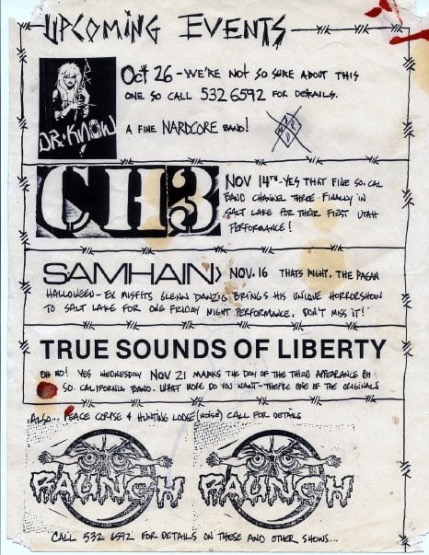 UPCOMING EVENTS
OCT 26 - WE'RE NOT SO SURE ABOUT THIS
ONE SO CALL 532 6592 FOR DETAILS.
A FINE NARDCORE BAND!
DR. KNOW
CH3
NOV 14TH - YES THAT FINE SO. CAL
BAND CHANNEL THREE FINALLY IN
SALT LAKE FOR THEIR FIRST UTAH
PERFORMANCE!
SAMHAIN
NOV. 16 THATS RIGHT, THE PAGAN
HALLOWEEN - EX MISFITS GLENN DANZIG BRINGS HIS UNIQUE HORRORSHOW
TO SALT LAKE FOR ONE FRIDAY NIGHT PERFORMANCE, DON'T MISS IT!
TRUE SOUNDS OF LIBERTY
OH NO! YES WEDNESDAY NOV 21 MARKS THE DAY OF THE THIRD APPEARANCE BY
SO. CALIFORNIA BAND. WHAT MORE DO YOU WANT - THEY'RE ONE OF THE ORIGINALS
ALSO... PEACE CORPSE & HUNTING LODGE (NOISE) CALL FOR DETAILS
RAUNCH RAUNCH
CALL 532 6592 FOR DETAILS ON THESE AND OTHER SHOWS...